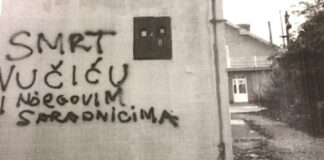 SMRT
VUČIĆU
I NJEGOVIM
SARADNICIMA